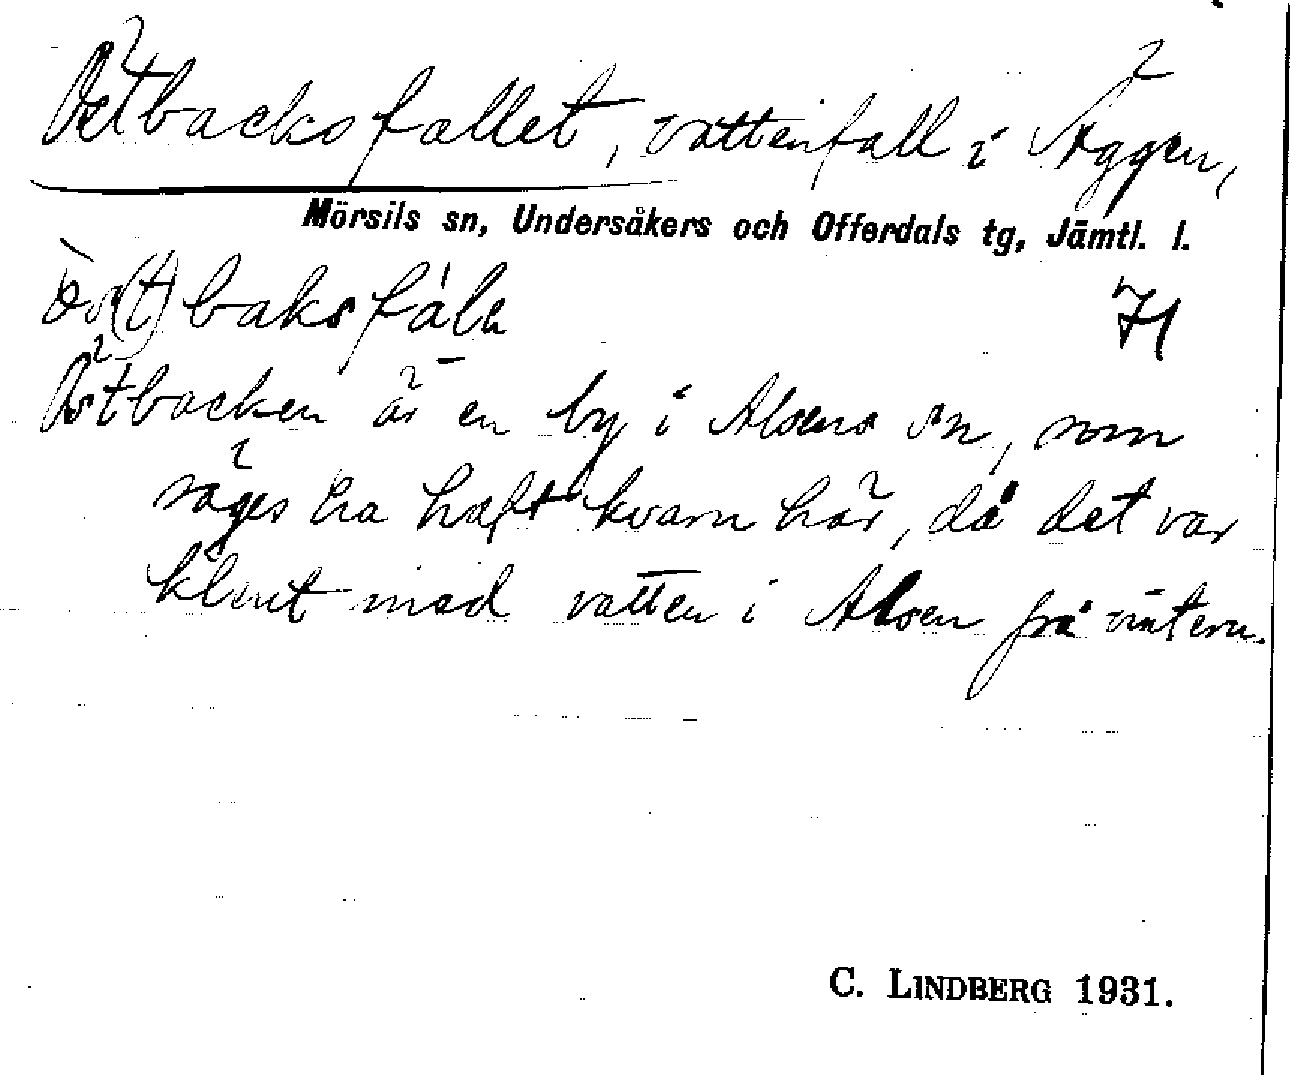 Östbacksfallet, vattenfall i Äggen,
Mörsils sn, Undersåkers och Offerdals tg, Jämtl. l.
71
Östbacken är en by i Alsens sn, som
säges ha haft kvarn här, då det var
klent med vatten i Alsen på vintern.
C. LINDBERG 1931.